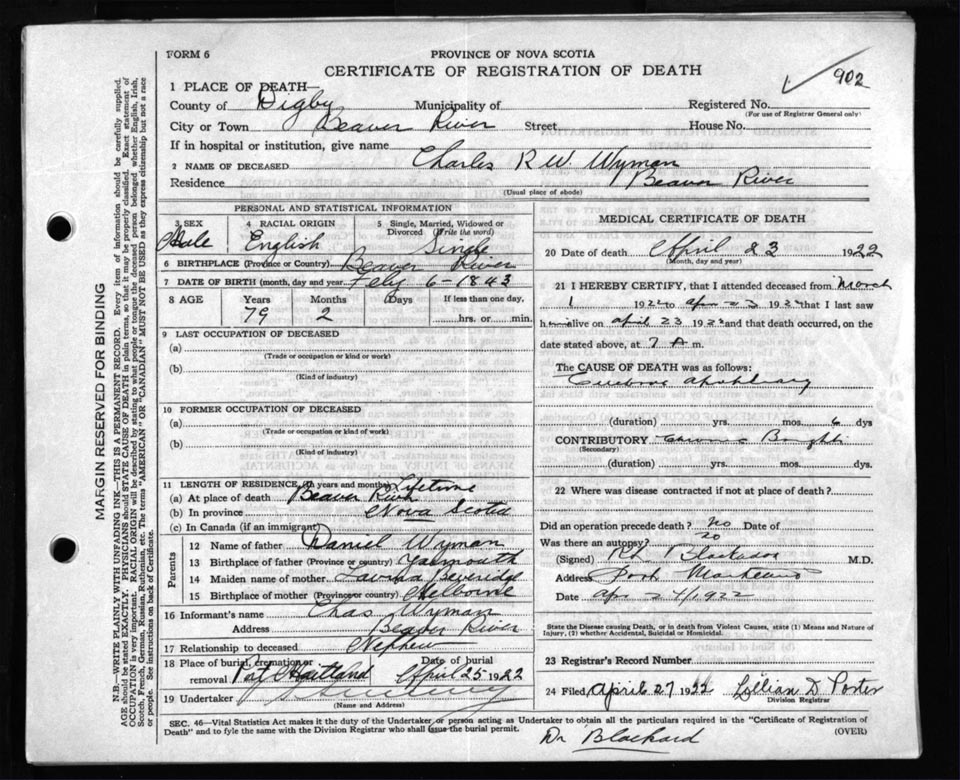 FORM 6
PROVINCE OF NOVA SCOTIA
CERTIFICATE OF REGISTRATION OF DEATH
902
1 PLACE OF DEATH—
County of Digby Municipality of Registered No.
(For use of Registrar General only)
City or Town Beaver River Street House No.
If in hospital or institution, give name
2 NAME OF DECEASED Charles R W. Wyman
Residence Beaver River
(Usual place of abode)
PERSONAL AND STATISTICAL INFORMATION
3 SEX 4 RACIAL ORIGIN 5 Single, Married, Widowed or
Divorced (Write the word)
Male English Single
6 BIRTHPLACE (Province or Country) Beaver River
7 DATE OF BIRTH (month, day and year) Feby 6-1843
8 AGE Years Months Days If less than one day,
79 2 hrs. or min.
9 LAST OCCUPATION OF DECEASED
(a)
(Trade or occupation or kind or work)
(b)
(Kind of industry)
10 FORMER OCCUPATION OF DECEASED
(a)
(Trade or occupation or kind of work)
(b)
(Kind of industry)
11 LENGTH OF RESIDENCE (In years and months) Lifetime
(a) At place of death Beaver River
(b) In province Nova Scotia
(c) In Canada (if an immigrant)
Parents
12 Name of father Daniel Wyman
13 Birthplace of father (Province or country) Yarmouth
14 Maiden name of mother Lavinia Beveridge
15 Birthplace of mother (Province or country) Shelborne
16 Informant's name Chas Wyman
Address Beaver River
17 Relationship to deceased Nephew
18 Place of burial, cremation or Date of burial
removal Port Maitland April 25 1922
19 Undertaker
(Name and Address)
MEDICAL CERTIFICATE OF DEATH
20 Date of death April 23 1922
(Month, day and year)
21 I HEREBY CERTIFY, that I attended deceased from March
1 1922 to apr 23 1922 that I last saw
him alive on april 23 1922 and that death occurred, on the
date stated above, at 7 A m.
The CAUSE OF DEATH was as follows:
(duration) yrs. mos. 6 dys
CONTRIBUTORY Chronic Brights
(Secondary)
(duration) yrs. mos. dys.
22 Where was disease contracted if not at place of death?
Did an operation precede death? no Date of
Was there an autopsy? no
(Signed) M.D.
Address Port Maitland
Date apr 24/1922
State the Disease causing Death, or in death from Violent Causes, state (1) Means and Nature of
Injury, (2) whether Accidental, Suicidal or Homicidal.
23 Registrar's Record Number
24 Filed April 27 1922 Lillian D Porter
Division Registrar
SEC. 46—Vital Statistics Act makes it the duty of the Undertaker or person acting as Undertaker to obtain all the particulars required in the "Certificate of Registration of
Death" and to fyle the same with the Division Registrar who shall issue the burial permit.
(OVER)
Dr Blackard
MARGIN RESERVED FOR BINDING
N.B.—WRITE PLAINLY WITH UNFADING INK—THIS IS A PERMANENT RECORD. Every item of information should be carefully supplied.
AGE should be stated EXACTLY. PHYSICIANS should STATE CAUSE OF DEATH in plain terms, so that it may be properly classified. Exact statement of
OCCUPATION is very important. RACIAL ORIGIN will be described by stating to what people or tongue the deceased person belonged whether English, Irish,
Scotch, French, German, Russian, Ruthenian, etc. The terms "AMERICAN" or "CANADIAN" MUST NOT BE USED as they express citizenship but not a race
or people. See instructions on back of Certificate.